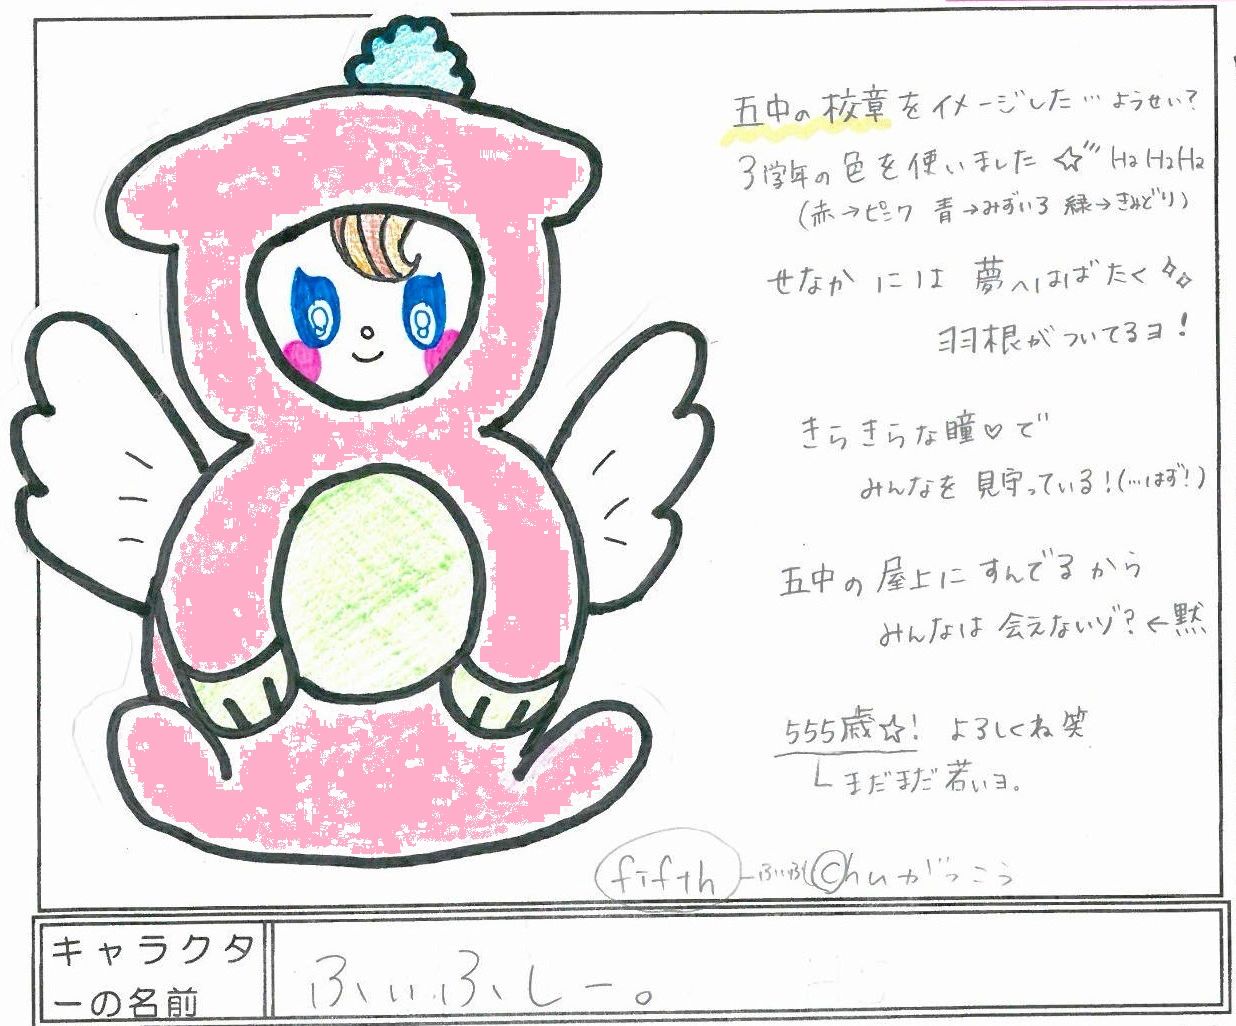 五中の校章をイメージした…ようせい?
3学年の色を使いました☆ HaHaHa
(赤→ピンク 青→みずいろ 緑→きみどり)
せなかには 夢へはばたく
羽根がついてるヨ!
きらきらな瞳♡で
みんなを見守っている!(…はず!)
五中の屋上にすんでるから
みんなは会えないゾ?←黙
555歳☆! よろしくね笑
まだまだ若いヨ。
fifth ふぃふ Chuがっこう
キャラクタ
ーの名前
ふぃふしー。